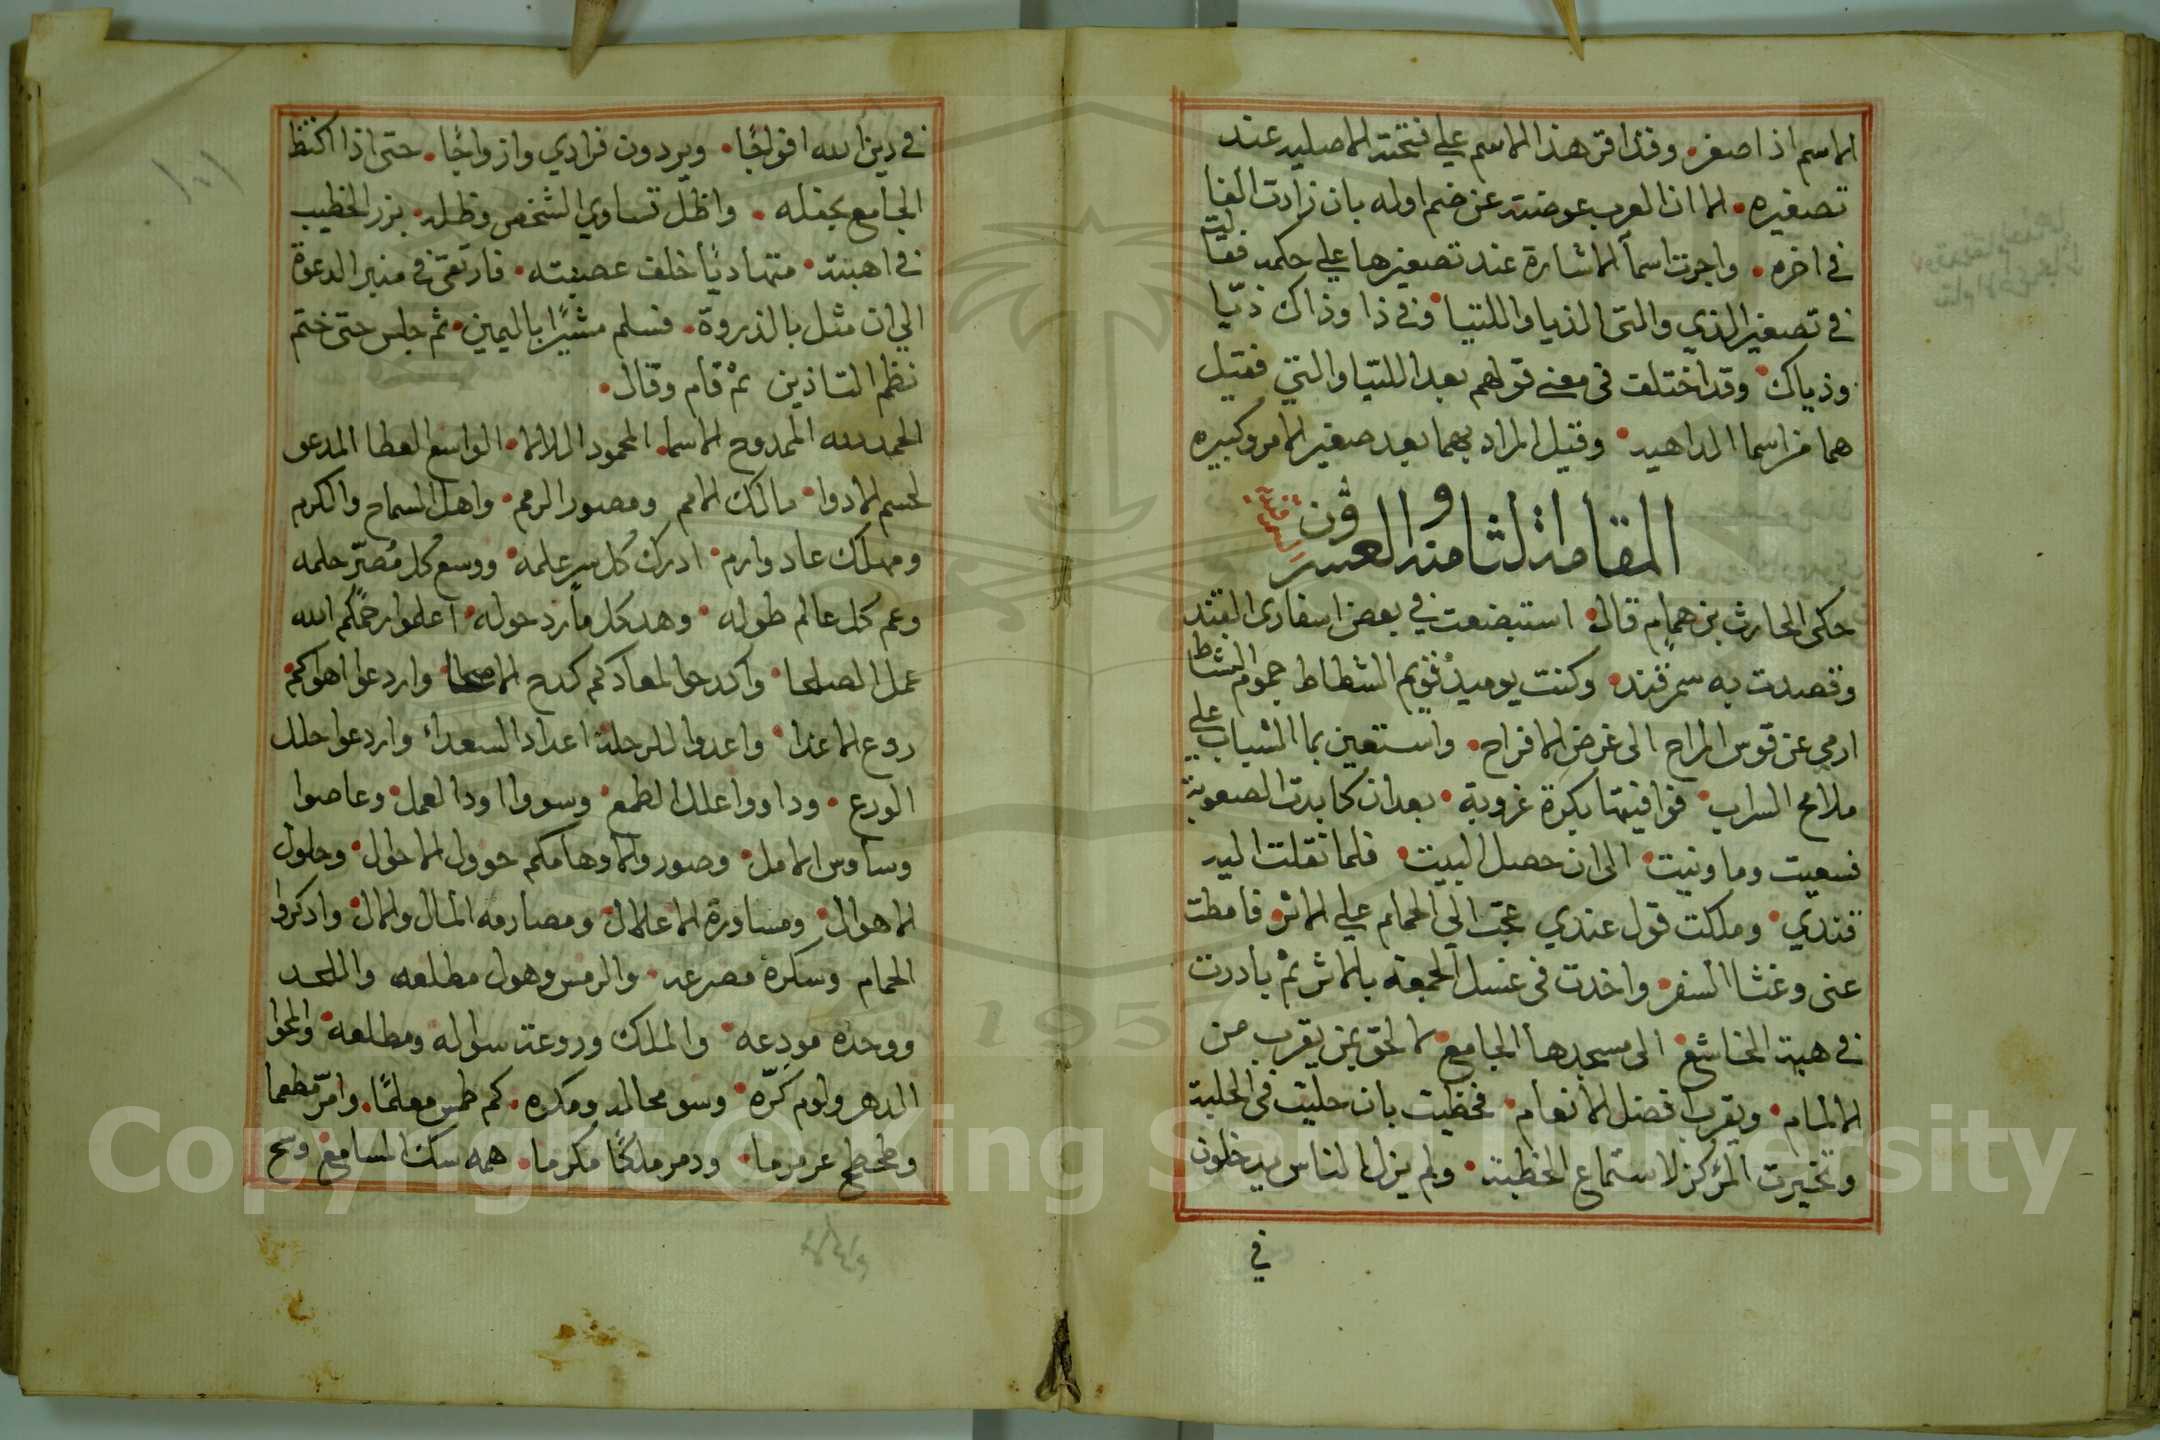 الاسم اذا صغر وقد اقر هذا الاسم علي فتحته الاصليه عند
تصغيره الا ان العرب عوضته عن ضم اوله بان زادت الفا
في اخره واجرت اسما الاشارة عند تصغيرها علي حكمه فقالت
في تصغير الذي والتي اللذيا واللتيا وفي ذا وذاك ذيّا
وذياك وقد اختلف في معني قولهم بعد اللتيا والتي فقيل
هما من اسما الداهيه وقيل المراد بهما بعد صغير الامر وكبيره
المقامة الثامنة والعشرون
السمرقندية
حكى الحارث بن همام قال استبضعت في بعض اسفاري القند
وقصدت به سمرقند وكنت يوميذ قويم الشطاط جموم النشاط
ارمي عن قوس المراح الى غرض الافراح واستعين بما الشباب علي
ملامح السراب فوافيتها بكرة عروبة بعد ان كابدت الصعوبة
فسعيت وما ونيت الى ان حصل البيت فلما نقلت اليه
قندي وملكت قول عندي عجت الي الحمام علي الاثر فامطت
عني وعثا السفر واخذت في غسل الجمعة بالاثر ثم بادرت
في هيئة الخاشع الى مسجدها الجامع لالحق بمن يقرب من
الامام ويقرب افضل الانعام فحظيت بان حليت في الحلبة
وتخيرت المركز لاستماع الخطبة ولم يزل الناس يدخلون
في
في دين الله افواجًا ويردون فرادي وازواجًا حتى اذا اكتظ
الجامع بحفله واظل تساوي الشخص وظله برز الخطيب
في اهبته متهاديًا خلف عصبته فارتقى في منبر الدعوة
الي ان مثل بالذروة فسلم مشيرًا باليمين ثم جلس حتى ختم
نظم التاذين ثم قام وقال
الحمد لله الممدوح الاسما المحمود الالا الواسع العطا المدعو
لحسم الادوا مالك الامم ومصور الرمم واهل السماح والكرم
ومهلك عاد وارم ادرك كل سر علمه ووسع كل مُصرّ حلمه
وعم كل عالم طوله وهد كل مارد حوله اعلموا رحمكم الله
عمل الصلحا واكدحوا لمعادكم كدح الاصحا واردعوا اهواكم
ردع الاعدا واعدوا للرحلة اعداد السعدا وادرعوا حلل
الورع وداووا علل الطمع وسووا اود العمل وعاصوا
وساوس الامل وصوروا لاوهامكم حوول الاحوال وحلول
الاهوال ومساورة الاعلال ومصارمه المال والال وادكروا
الحمام وسكرة مصرعه والرمس وهول مطلعه واللحد
ووحدة مودعه والملك وروعة سواله ومطلعه والمحوا
الدهر ولوم كرّه وسو محاله ومكره كم طمس معلمًا وامرّ مطعما
وطحطح عرمرما ودمر ملكًا مكرما همه سك المسامع وسح
Copyright © King Saud University
1957